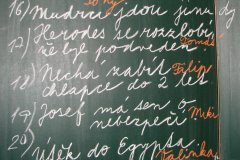 16) Mudrci jdou jinudy
17) Herodes se rozzlobil,
že byl podveden Tomáš
18) Nechá zabít Filip
chlapce do 2 let
19) Josef má sen o
nebezpečí Miki
20)
Útěk do Egypta Kalinka